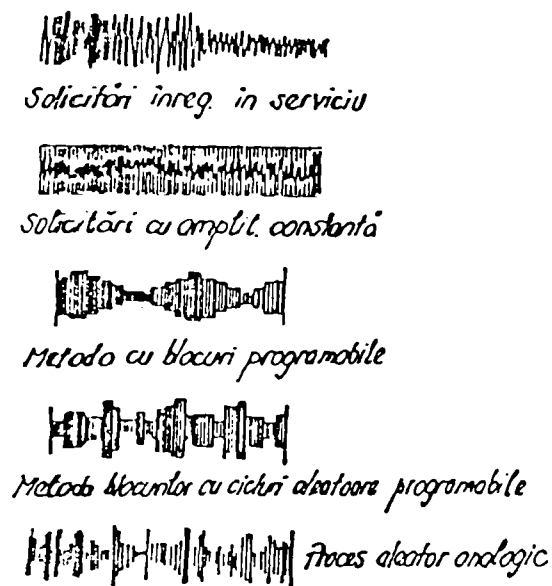 Solicitări înreg. în serviciu
Solicitări cu amplit. constantă
Metoda cu blocuri programabile
Metoda blocurilor cu cicluri aleatoare programabile
Proces aleator analogic